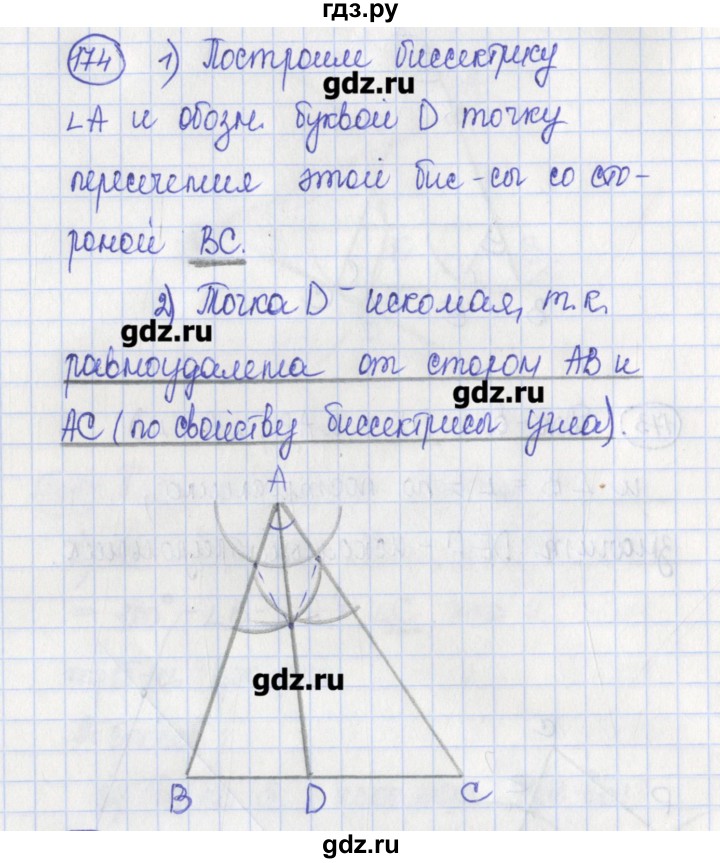 гдз.ру
174 1) Построим биссектрису
gdz.ru
∠A и обозн. буквой D точку
пересечения этой бис-сы со сто-
роной BC.
2) Точка D - искомая, т.к.
gdz.ru
равноудалена от сторон AB и
gdz.ru
AC (по свойству биссектрисы угла).
A
gdz.ru
B D C
gdz.ru